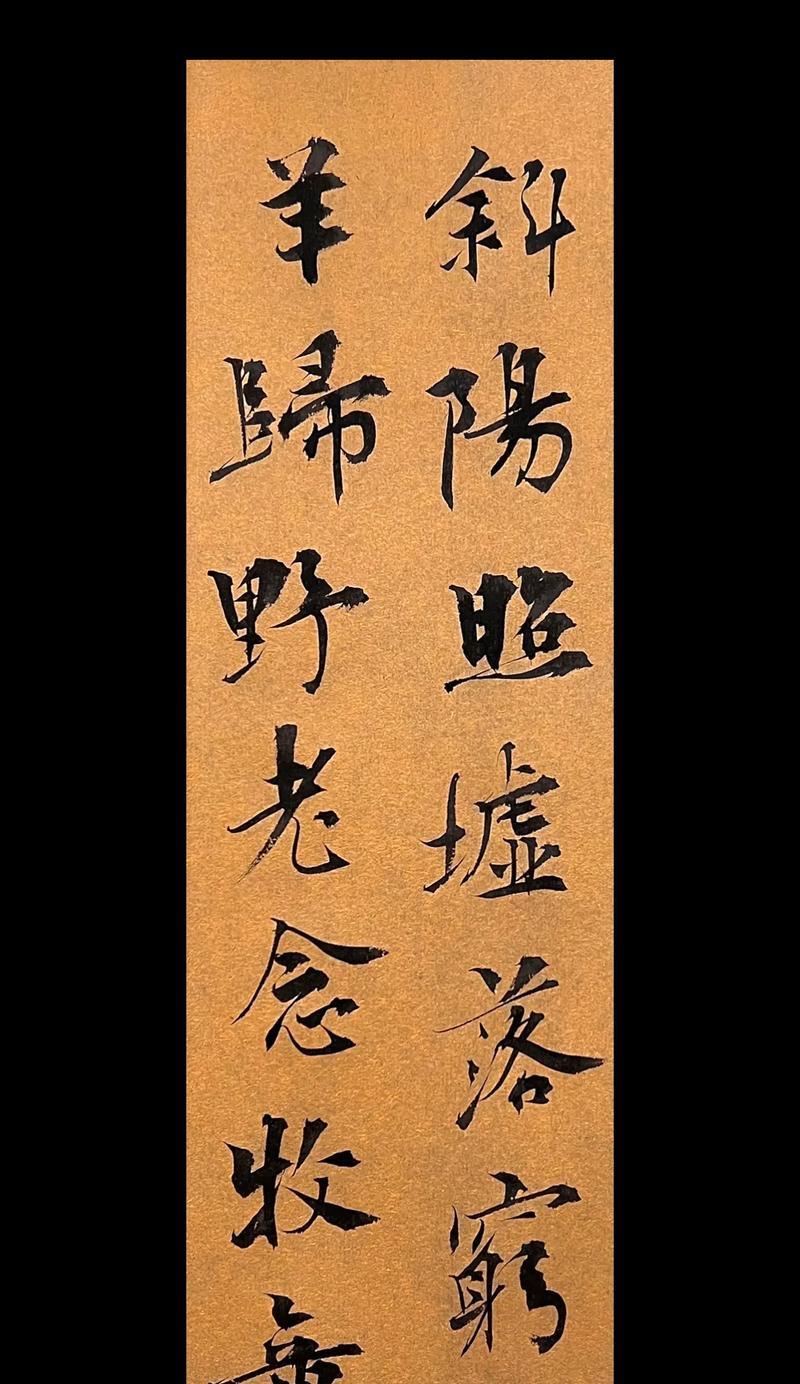 斜陽照墟落窮
羊歸野老念牧